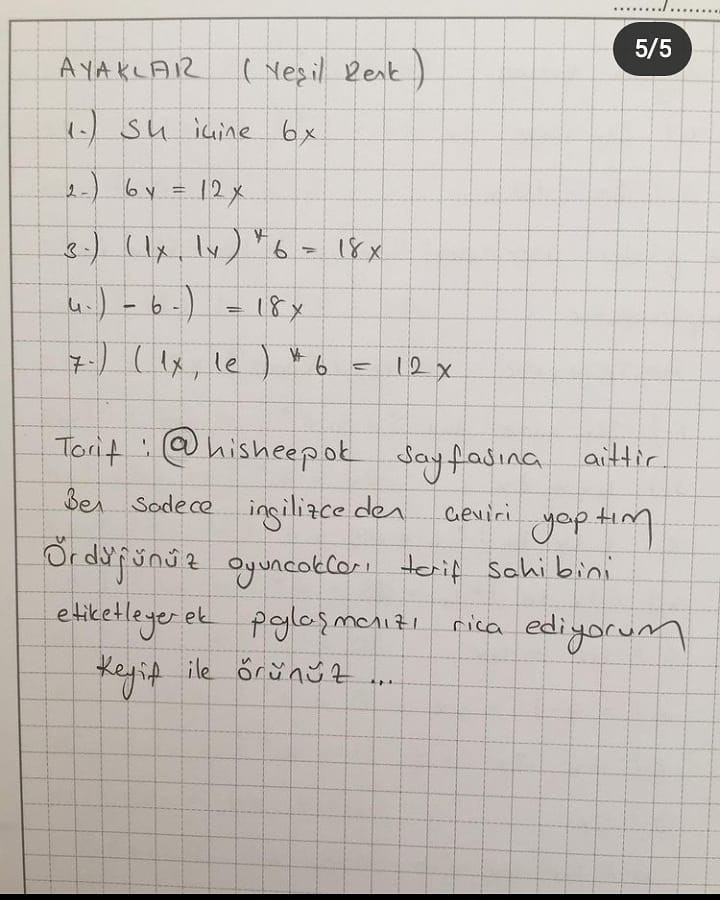 5/5
AYAKLAR (Yeşil Renk)
1-) Sh içine 6x
2-) 6v = 12x
3-) (1x, 1v) * 6 = 18x
4-) - 6-) = 18x
7-) (1x, 1e) * 6 = 12x
Tarif : @hisheepok sayfasına aittir.
Ben sadece ingilizceden çeviri yaptım
Ördüğünüz oyuncakları tarif sahibini
etiketleyerek paylaşmanızı rica ediyorum
Keyif ile örünüz ...